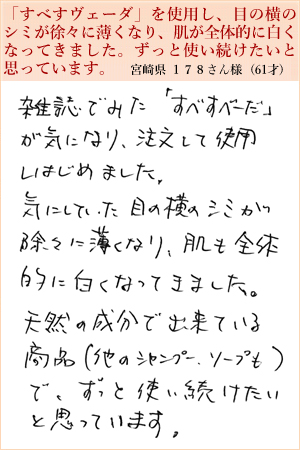 「すべすヴェーダ」を使用し、目の横の
シミが徐々に薄くなり、肌が全体的に白く
なってきました。ずっと使い続けたいと
思っています。 宮崎県 １７８さん様（61才）
雑誌でみた「すべすべーだ」
が気になり、注文して使用
しはじめました。
気にしていた目の横のシミがか
除々に薄くなり、肌も全体
的に白くなってきました。
天然の成分で出来ている
商品(他のシャンプー、ソープも)
で、ずっと使い続けたい
と思っています。